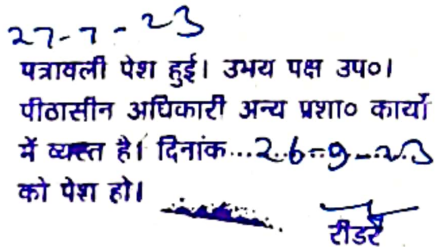 27-7-23
पत्रावली पेश हुई। उभय पक्ष उप०।
पीठासीन अधिकारी अन्य प्रशा० कार्यो
में व्यस्त है। दिनांक...26-9-23
को पेश हो।
रीडर